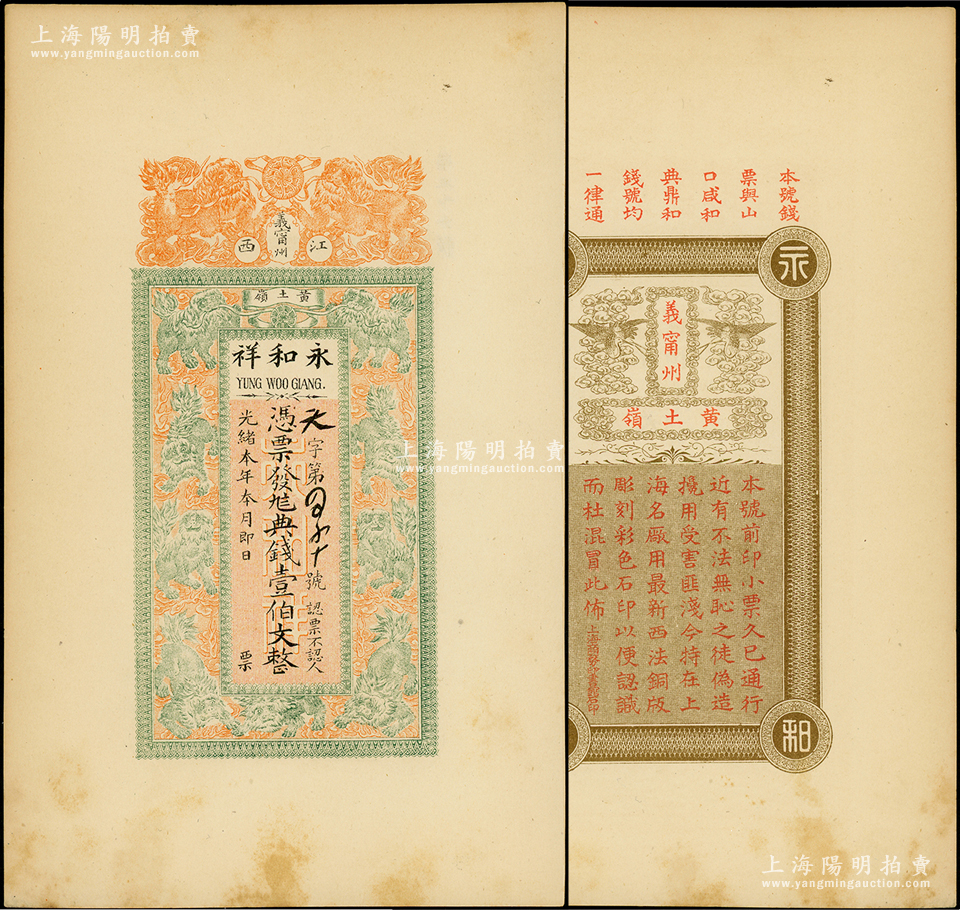 上海陽明拍賣
www.yangmingauction.com
江西
義甯州
黃土嶺
永和祥
YUNG WOO GIANG.
天字第
號
認票不認人
憑票發兌典錢壹伯文整
光緒本年本月即日
票
本號錢
票與山
口咸和
典鼎和
錢號均
一律通
永
義甯州
黃土嶺
本號前印小票久已通行
近有不法無恥之徒偽造
攙用受害匪淺今特在上
海名廠用最新西法銅版
彫刻彩色石印以便認識
而杜混冒此佈
和
上海陽明拍賣
www.yangmingauction.com
上海陽明拍賣
www.yangmingauction.com